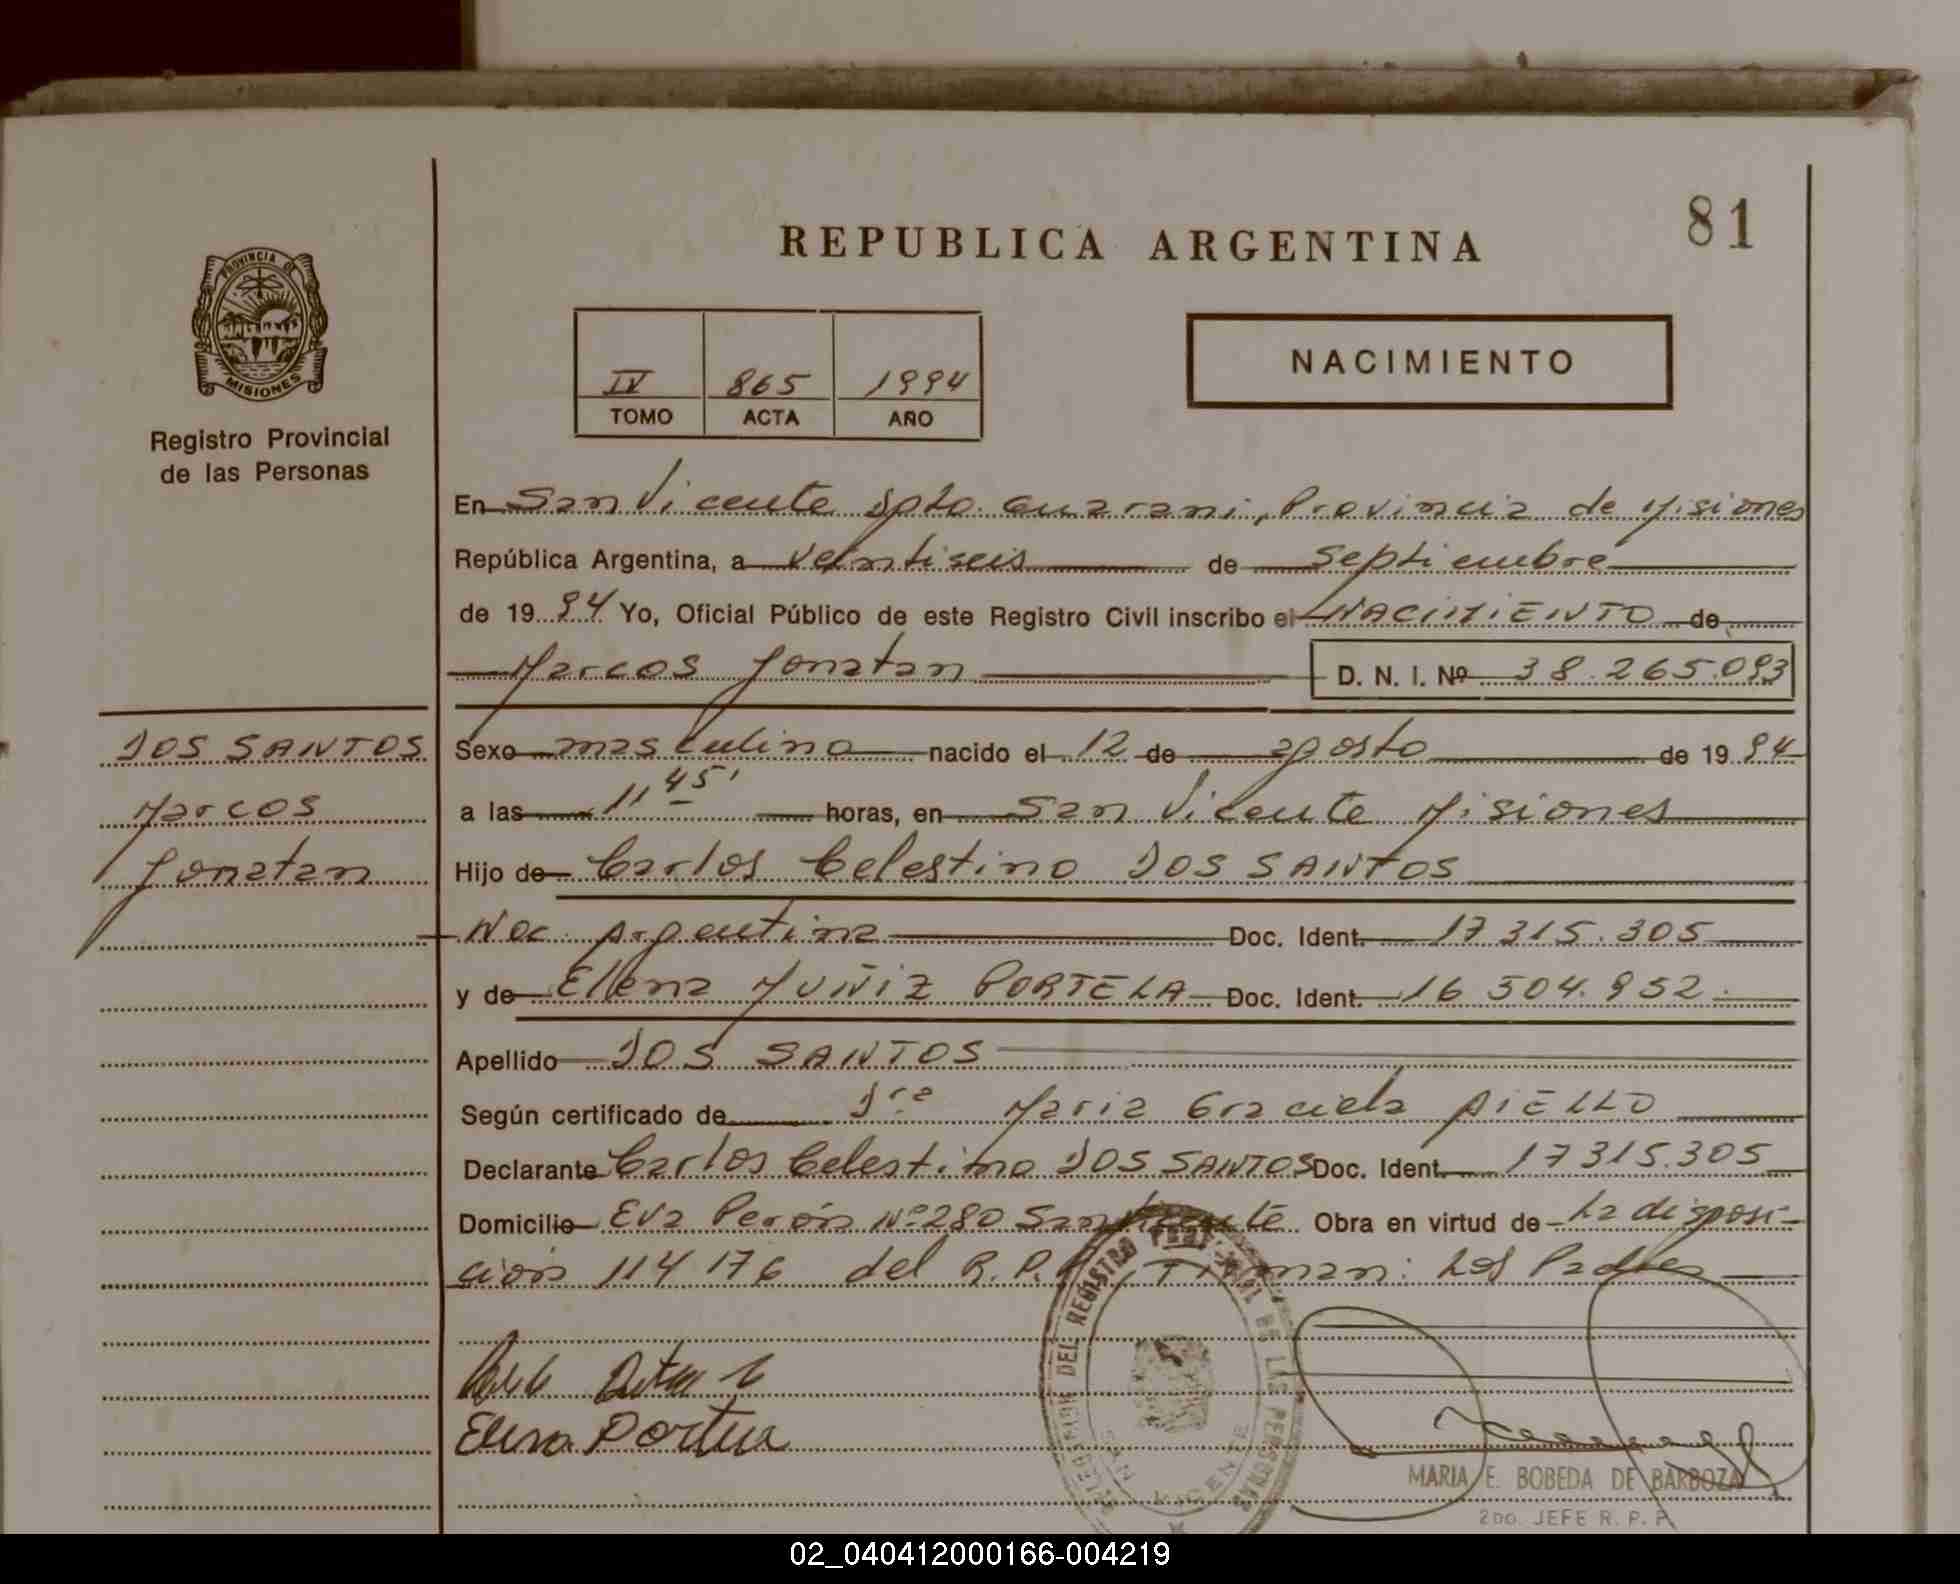 REPUBLICA ARGENTINA
81
PROVINCIA DE
MISIONES
Registro Provincial
de las Personas
IV 865 1994
TOMO ACTA AÑO
NACIMIENTO
En San Vicente Dpto. Guarani, Provincia de Misiones
República Argentina, a veintiseis de Septiembre
de 19 94 Yo, Oficial Público de este Registro Civil inscribo el NACIMIENTO de
Marcos Jonatan D. N. I. Nº 38.265.093
DOS SANTOS
Marcos
Jonatan
Sexo masculino nacido el 12 de agosto de 19 94
a las 11 45' horas, en San Vicente Misiones
Hijo de Carlos Celestino DOS SANTOS
Nac. Argentina Doc. Ident. 17 315.305
y de Elena MUÑIZ PORTELA Doc. Ident. 16 504.952.
Apellido DOS SANTOS
Según certificado de Dra Maria Graciela AIELLO
Declarante Carlos Celestino DOS SANTOS Doc. Ident. 17 315.305
Domicilio Eva Perón Nº 280 San Vicente Obra en virtud de La disposi-
ción 114 176 del R.P. Firman: Los Padres
DELEGACION DEL REGISTRO PROVINCIAL DE LAS PERSONAS
SAN VICENTE
MARIA E. BOBEDA DE BARBOZA
2do. JEFE R. P. P.
02_040412000166-004219